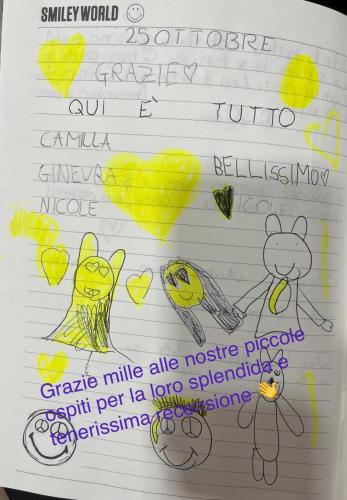 SMILEYWORLD
25 OTTOBRE
GRAZIE
QUI È TUTTO
CAMILLA
GINEVRA BELLISSIMO
NICOLE NICOLE
Grazie mille alle nostre piccole
ospiti per la loro splendida e
tenerissima recensione